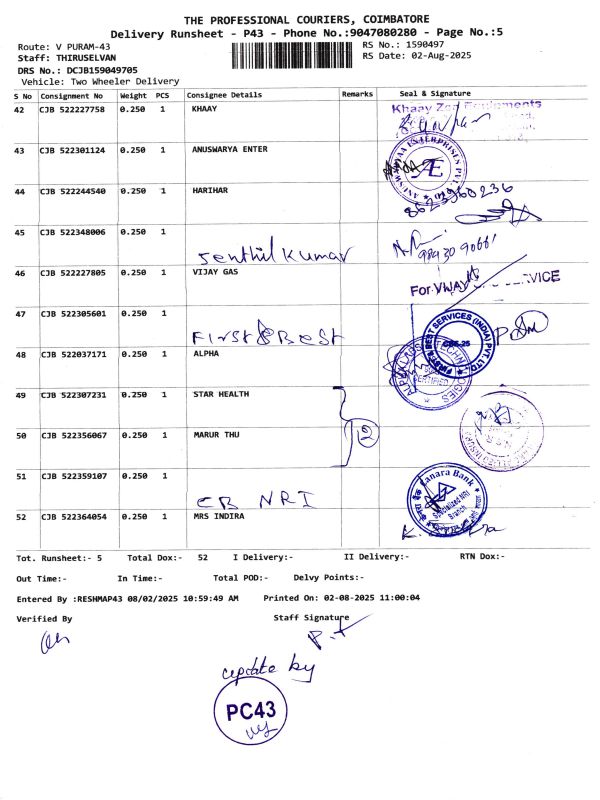 THE PROFESSIONAL COURIERS, COIMBATORE
Delivery Runsheet - P43 - Phone No.:9047080280 - Page No.:5
Route: V PURAM-43 RS No.: 1590497
Staff: THIRUSELVAN RS Date: 02-Aug-2025
DRS No.: DCJB159049705
Vehicle: Two Wheeler Delivery
S No Consignment No Weight PCS Consignee Details Remarks Seal & Signature
42 CJB 522227758 0.250 1 KHAAY
43 CJB 522301124 0.250 1 ANUSWARYA ENTER
AE
44 CJB 522244540 0.250 1 HARIHAR
8623960236
45 CJB 522348006 0.250 1
Senthil Kumar
46 CJB 522227805 0.250 1 VIJAY GAS
For VIJAY
47 CJB 522305601 0.250 1
First & Best
BEST SERVICES (INDIA) PVT LTD
48 CJB 522037171 0.250 1 ALPHA
49 CJB 522307231 0.250 1 STAR HEALTH
2
50 CJB 522356067 0.250 1 MARUR THU
51 CJB 522359107 0.250 1
CB NRI
Canara Bank
Specialized NRI
Branch
52 CJB 522364054 0.250 1 MRS INDIRA
Tot. Runsheet:- 5 Total Dox:- 52 I Delivery:- II Delivery:- RTN Dox:-
Out Time:- In Time:- Total POD:- Delvy Points:-
Entered By :RESHMAP43 08/02/2025 10:59:49 AM Printed On: 02-08-2025 11:00:04
Verified By Staff Signature
update by
PC43